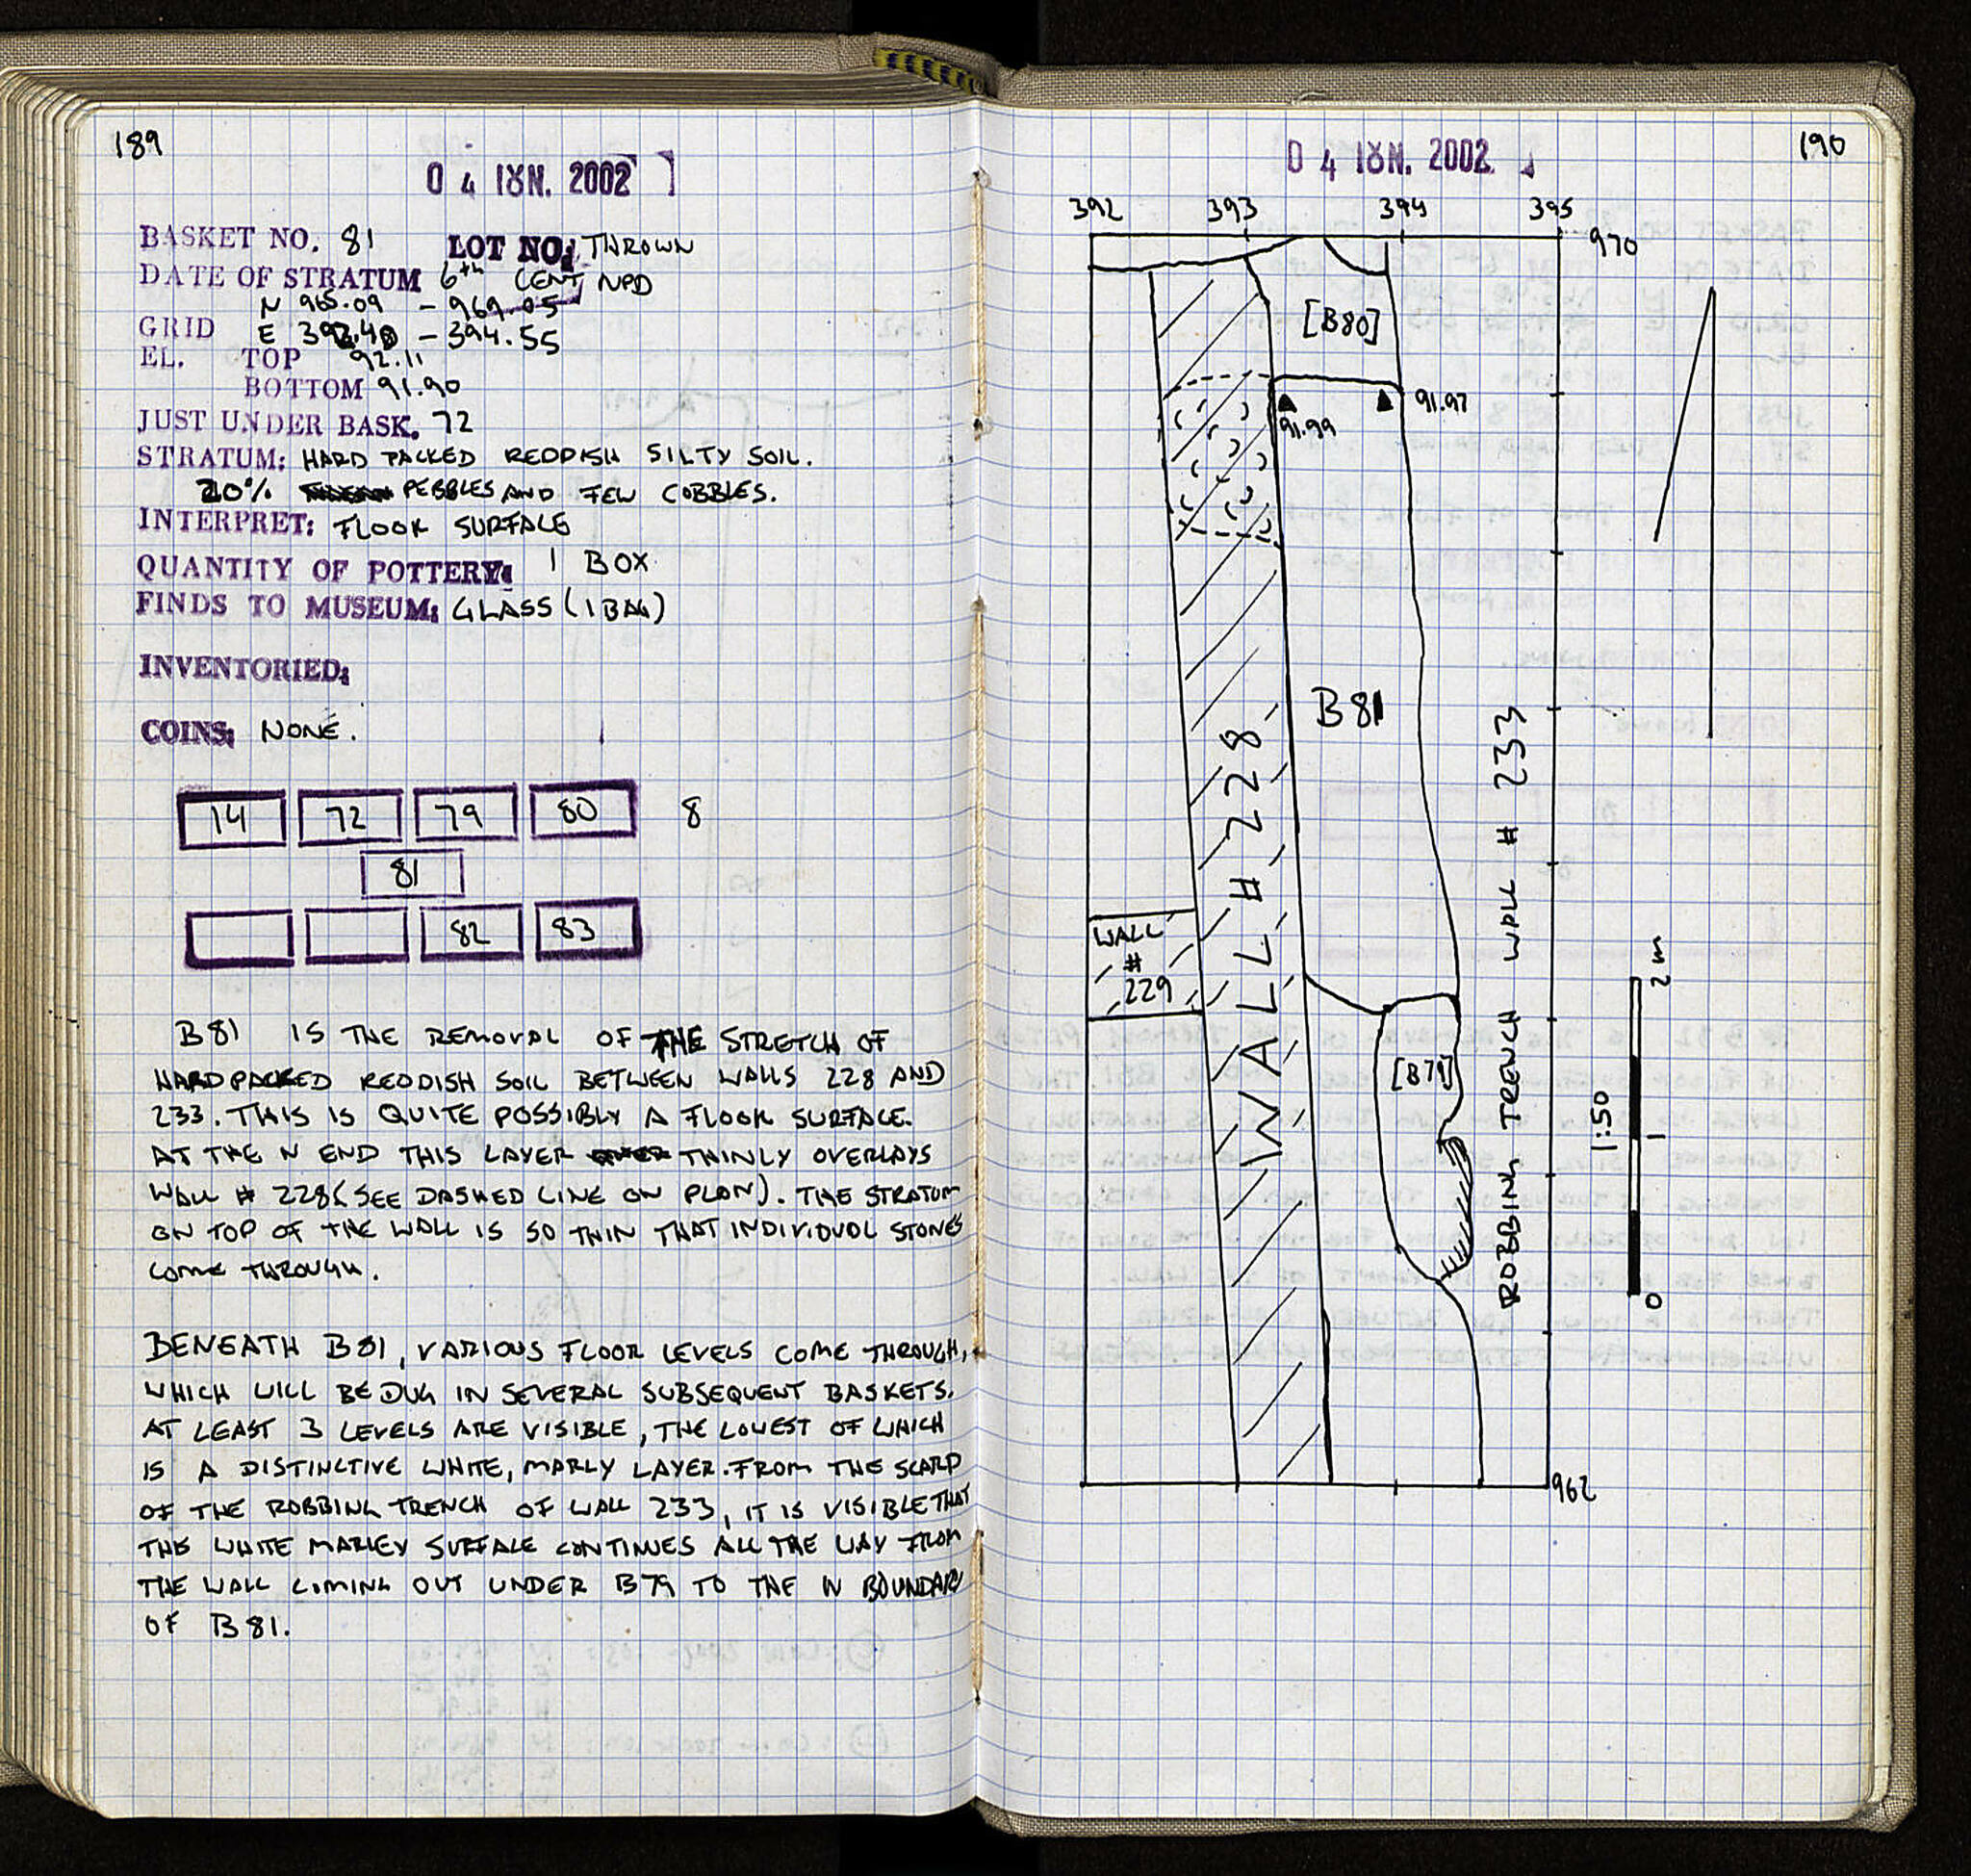 189
0 4 ΙΟΥΝ. 2002
BASKET NO. 81 LOT NO: THROWN
DATE OF STRATUM 6th CENT, NPD
N 965.09 - 969.05
GRID E 393.40 - 394.55
EL. TOP 92.11
BOTTOM 91.90
JUST UNDER BASK. 72
STRATUM: HARD PACKED REDDISH SILTY SOIL.
20% PEBBLES AND FEW COBBLES.
INTERPRET: FLOOR SURFACE
QUANTITY OF POTTERY: 1 BOX
FINDS TO MUSEUM: GLASS (1 BAG)
INVENTORIED:
COINS: NONE.
14 72 79 80 8
81
82 83
B81 IS THE REMOVAL OF THE STRETCH OF
HARD PACKED REDDISH SOIL BETWEEN WALLS 228 AND
233. THIS IS QUITE POSSIBLY A FLOOR SURFACE.
AT THE N END THIS LAYER THINLY OVERLAYS
WALL # 228 (SEE DASHED LINE ON PLAN). THE STRATUM
ON TOP OF THE WALL IS SO THIN THAT INDIVIDUAL STONES
COME THROUGH.
BENEATH B81, VARIOUS FLOOR LEVELS COME THROUGH,
WHICH WILL BE DUG IN SEVERAL SUBSEQUENT BASKETS.
AT LEAST 3 LEVELS ARE VISIBLE, THE LOWEST OF WHICH
IS A DISTINCTIVE WHITE, MARLY LAYER. FROM THE SCARP
OF THE ROBBING TRENCH OF WALL 233, IT IS VISIBLE THAT
THE WHITE MARLEY SURFACE CONTINUES ALL THE WAY FROM
THE WALL COMING OUT UNDER B79 TO THE N BOUNDARY
OF B81.
190
0 4 ΙΟΥΝ. 2002
392 393 394 395
970
[B80]
91.97
91.99
B81
WALL # 228
WALL
#
229
[B79]
ROBBING TRENCH WALL # 233
1:50
2 m
1
0
962